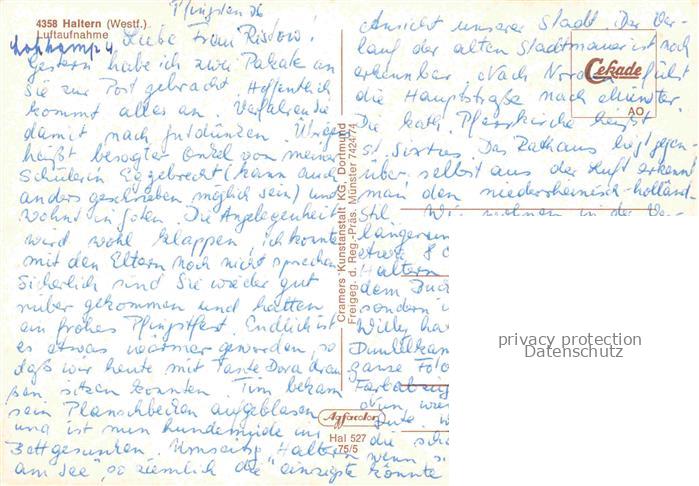 Pfingsten 76
4358 Haltern (Westf.)
Luftaufnahme
Lohkamp 4
Liebe Frau Ristow!
Gestern habe ich zwei Pakete an
Sie zur Post gebracht. Hoffentlich
kommt alles an. Verfahren Sie
damit nach Gutdünken. Übrigens
heißt besagter Onkel von meiner
Schülerin Eggebrecht (kann auch
anders geschrieben möglich sein) und
wohnt in Die Angelegenheit
wird wohl klappen, ich konnte
mit den Eltern noch nicht sprechen.
Sicherlich sind Sie wieder gut
rüber gekommen und hatten
ein frohes Pfingstfest. Endlich ist
es etwas wärmer geworden, so
daß wir heute mit Tante Dora drau-
ßen sitzen konnten. Tim bekam
sein Planschbecken aufgeblasen
und ist nun hundemüde ins
Bett gesunken. Umseitig "Haltern
am See", so ziemlich die einzigste
Ansicht unserer Stadt. Der Ver-
lauf der alten Stadtmauer ist noch
erkennbar. Nach Norden führt
die Hauptstraße nach Münster.
Die kath. Pfarrkirche heißt
St. Sixtus. Das Rathaus liegt gegen-
über, selbst aus der Luft erkennt
man den niederrheinisch-holländ.
Stil. Wir wohnen in der Ver-
längerung
etwa 80
Haltern
dem Buch
sondern
Willy hat
Dunkelkam
ganze Foto
Farbabzüg
Nun, wie
Gute
die sch
wenn si
könnte
Cekade
AO
Cramers Kunstanstalt KG, Dortmund
Freigeg. d. Reg.-Präs. Münster 7424/74
Agfacolor
Hal 527
75/5
privacy protection
Datenschutz